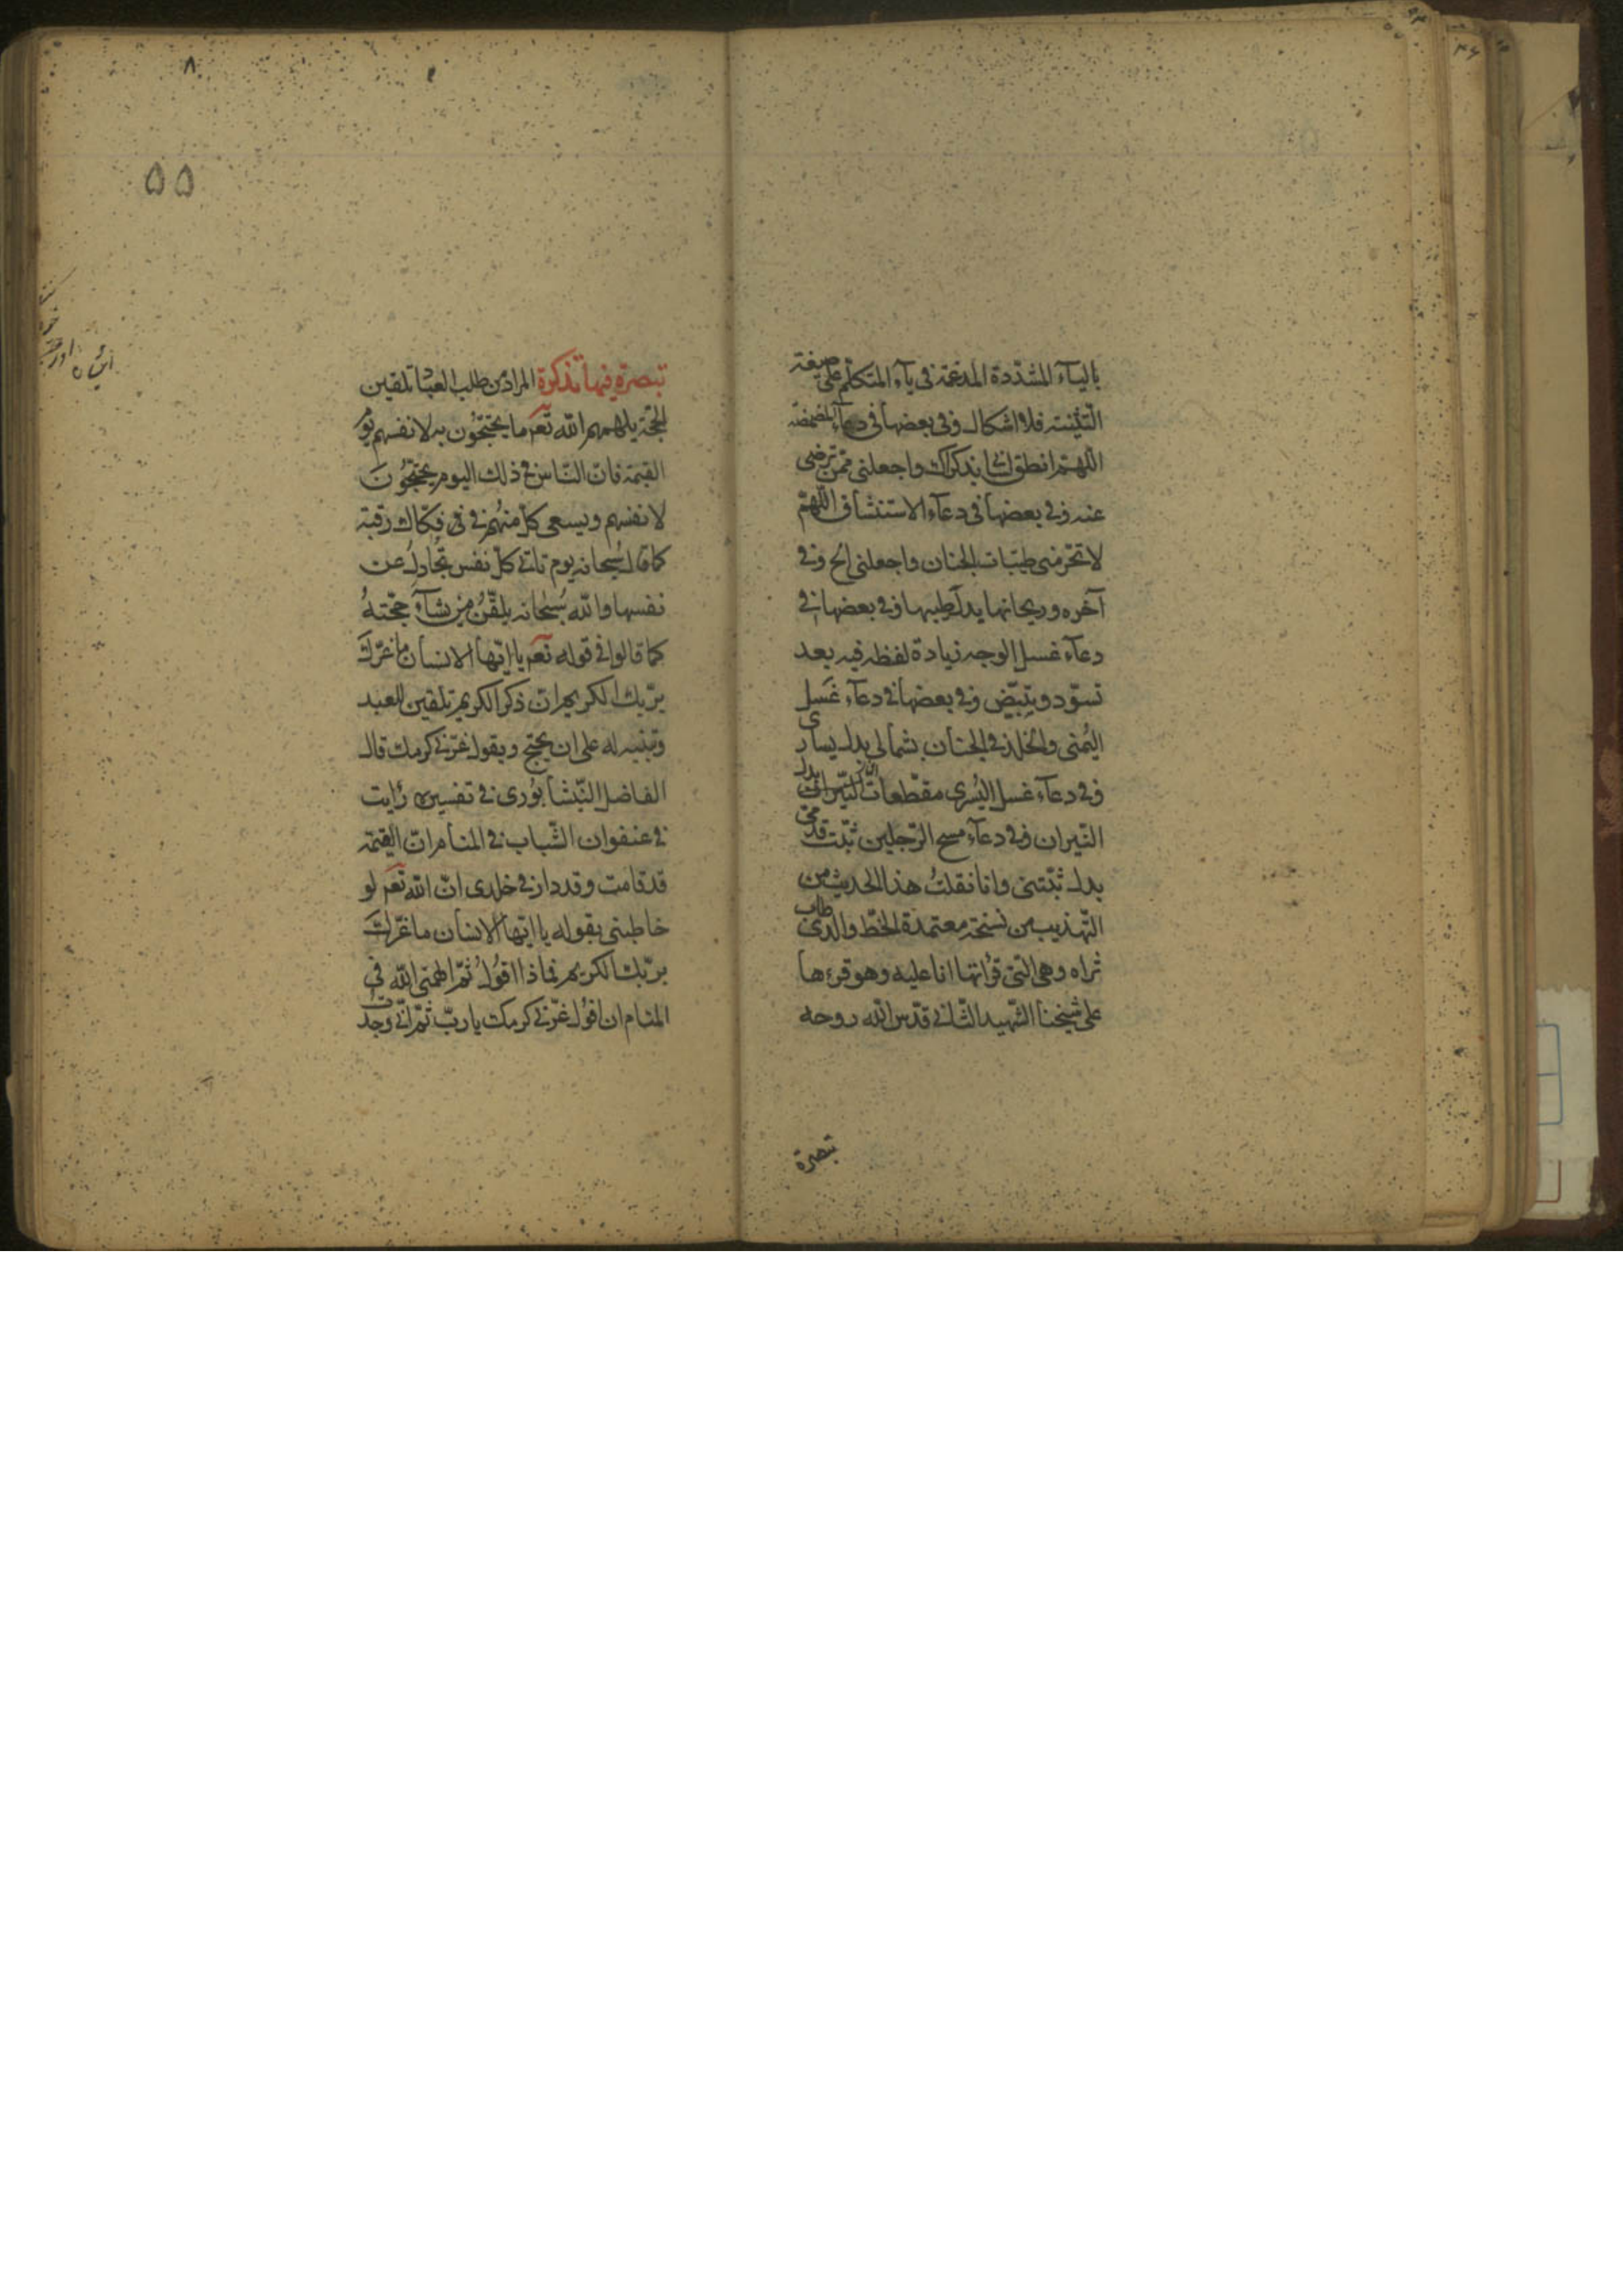 بالياء المشددة المدغمة فى ياء المتكلم على صيغة
التثنية فلا اشكال وفى بعضها فى دعاء المضمضة
اللهم انطق لسانى بذكراك واجعلنى ممن ترضى
عنه وفى بعضها فى دعاء الاستنشاق اللهم
لا تحرمنى طيبات الجنان واجعلنى الخ وفى
آخره وريحانها بدل وطيبها وفى بعضها فى
دعاء غسل الوجه زيادة لفظه فيه بعد
تسود وتبيض وفى بعضها فى دعاء غسل
اليمنى والخلد فى الجنان بشمالى بدل يسارى
وفى دعاء غسل اليسرى مقطعات النيران بدل
النيران وفى دعاء مسح الرجلين ثبت قدمى
بدل ثبتنى وانا نقلت هذا الحديث من
التهذيب من نسخة معتمدة بخط والدى طاب
ثراه وهى التى قرأتها انا عليه وهو قرءها
على شيخنا الشهيد الثانى قدس الله روحه
تبصرة
٨
٥٥
تبصرة فيها تذكرة المراد من طلب العبد تلقين
الحجة يلهمهم الله تعم ما يحتجون به لانفسهم يوم
القيمة فان الناس فى ذلك اليوم يحتجون
لانفسهم ويسعى كل منهم فى فكاك رقبته
كما قال سبحانه يوم تاتى كل نفس تجادل عن
نفسها والله سبحانه يلقن من يشاء حجته
كما قالوا فى قوله تعم يا ايها الانسان ما غرك
بربك الكريم ان ذكر الكريم تلقين للعبد
وتنبيه له على ان يحتج ويقول غرنى كرمك قال
الفاضل النيشابورى فى تفسيره رايت
فى عنفوان الشباب فى المنام ان القيمة
قد قامت وقد دار فى خلدى ان الله تعم لو
خاطبنى بقوله يا ايها الانسان ما غرك
بربك الكريم فماذا اقول ثم الهمنى الله فى
المنام ان اقول غرنى كرمك يا رب ثم انى وجدت